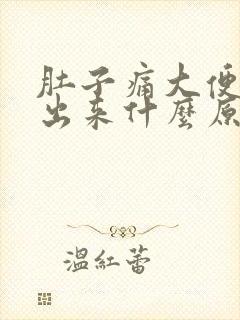 肚子痛大便
出来什麼原
溫紅蕾